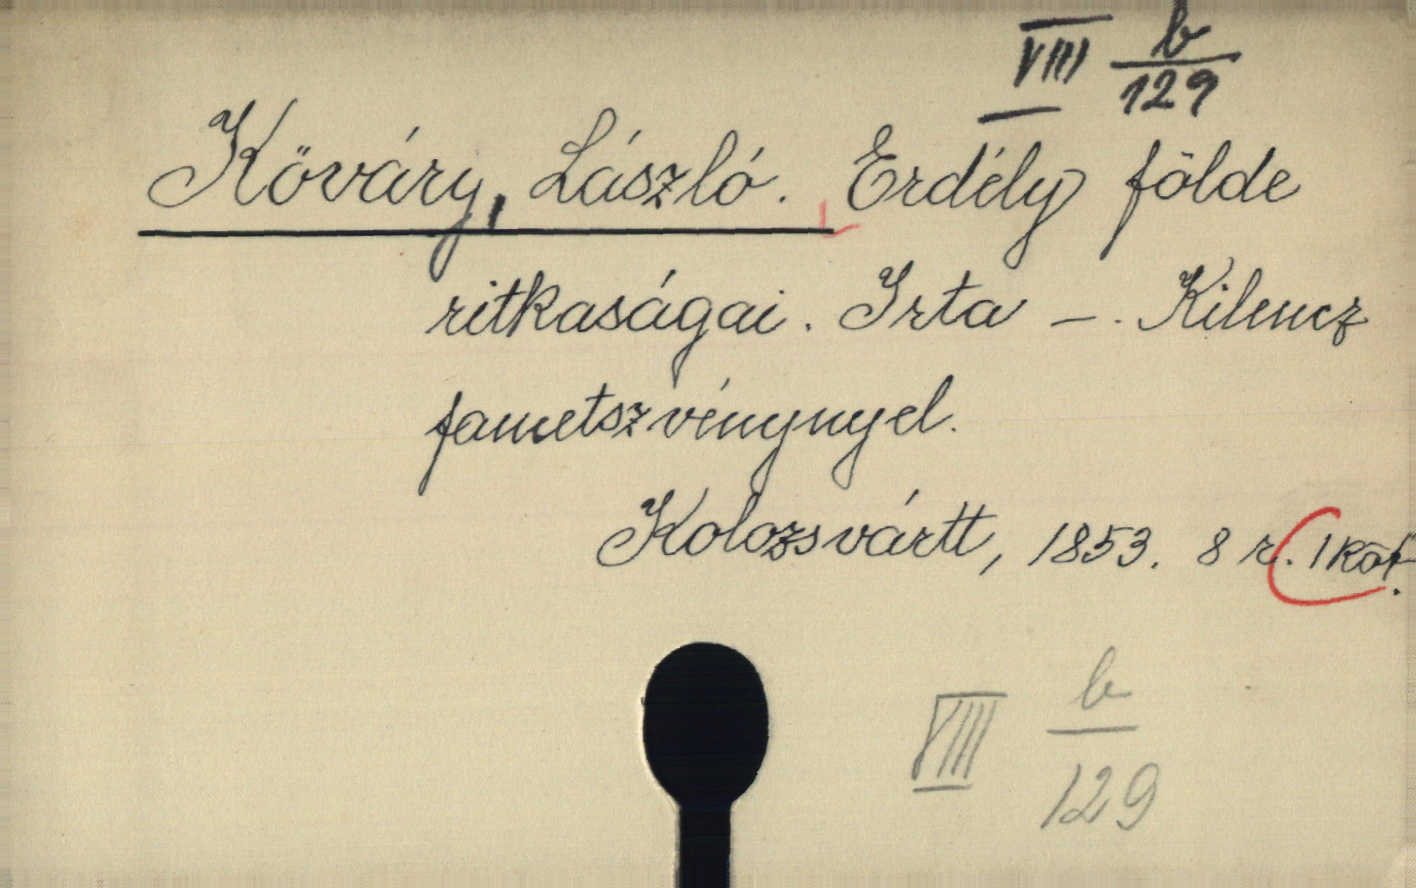 VIII b/129
Köváry, László. Erdély földe
ritkaságai. Irta —. Kilencz
fametszvénynyel.
Kolozsvártt, 1853. 8 r. 1 köt.
VIII b/129